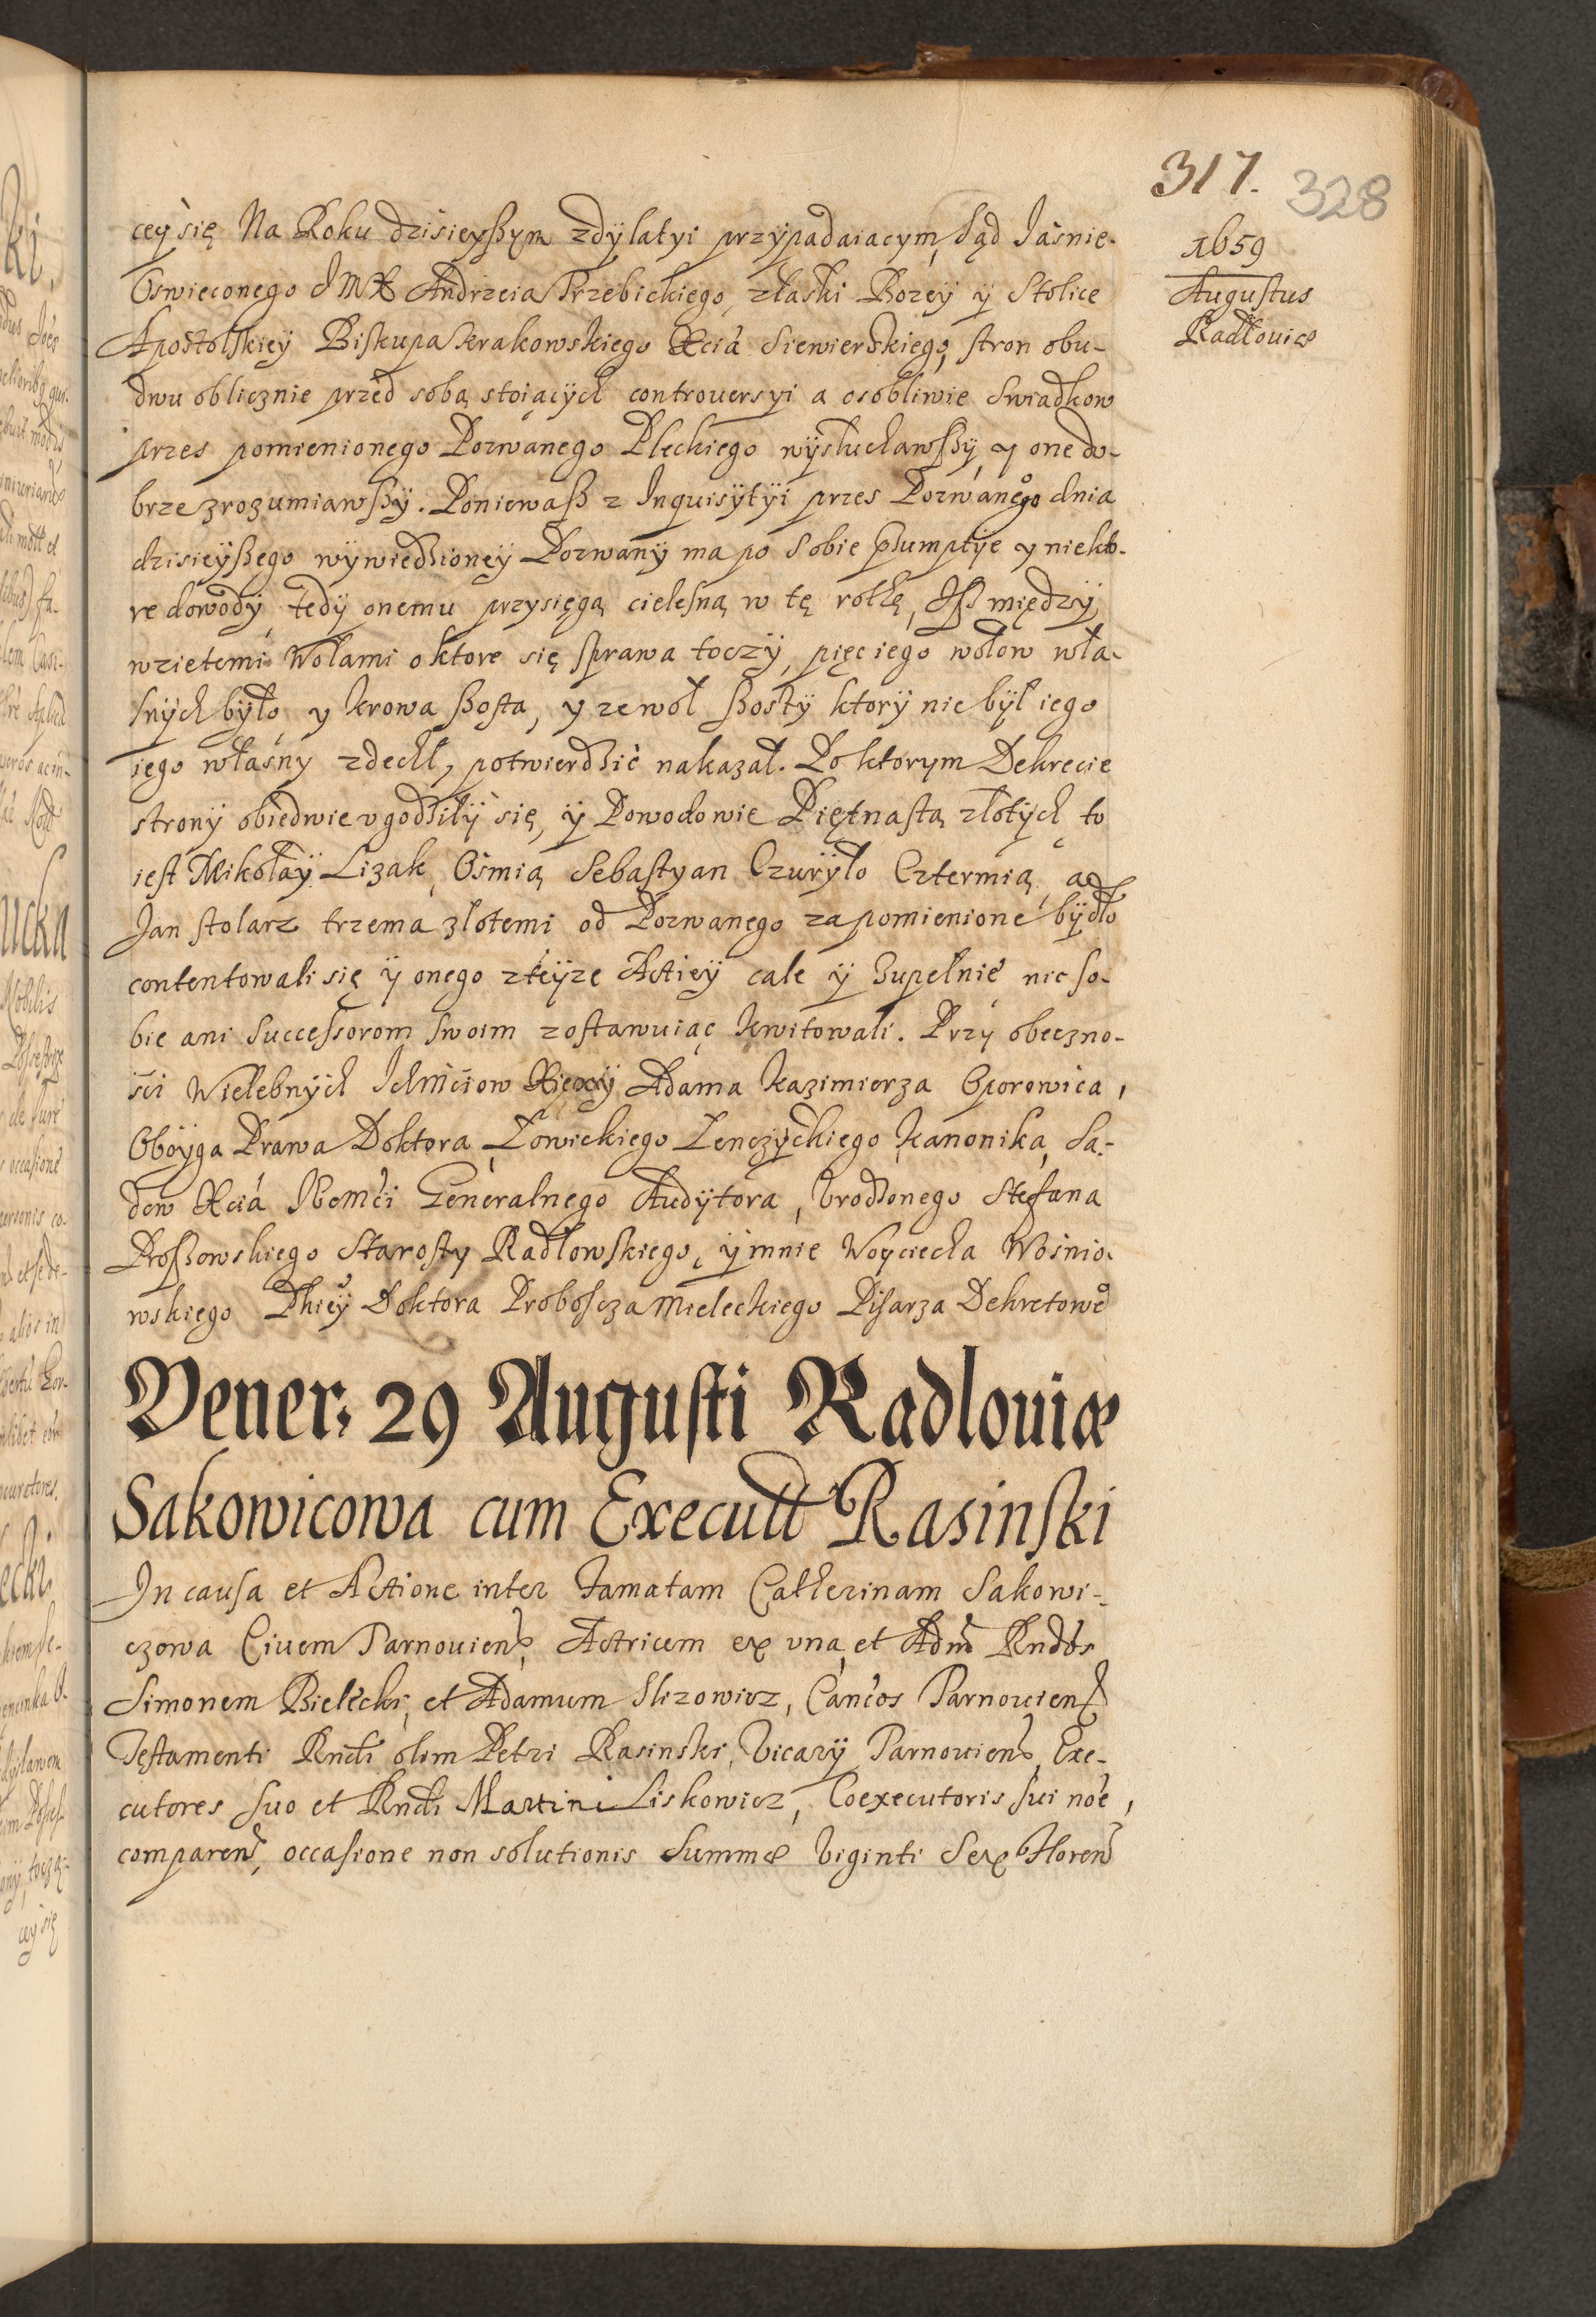 317. 328
1659
Augustus
Radłoviæ
cey się Na Roku dzisieyßym zdÿlatyi przÿpadaiacym, Sąd Jaśnie.
Oswieconego JMX Andrzeia Trzebickiego, złaski Bozeÿ ÿ Stolice
Apostolskieÿ Biskupa krakowskiego Xcia Siewierskiego, stron obu-
dwu oblicznie przed sobą stoiącÿch controuersyi a osobliwie Swiadkow
przes pomienionego Pozwanego Pleckiego wÿsłuchawßÿ, y one do-
brze zrozumiawßÿ. Poniewaß z Inquisÿtÿi przes Pozwanego dnia
dzisieÿßego wÿwiedzioneÿ Pozwanÿ ma po Sobie psumptÿe y niekto-
re dowodÿ, tedÿ onemu przysięgą cielesną w tę rothę, Iß międzÿ
wzietemi Wołami o ktore się sprawa toczÿ, pięc iego wołow wła-
snÿch bÿło y krowa ßosta, y ze woł ßostÿ ktorÿ nie bÿł iego
iego własny zdechł, potwierdzić nakazał. Po ktorym Dekrecie
stronÿ obiedwie vgodziłÿ się, ÿ Powodowie Piętnastą złotÿch to
iest Mikołaÿ Lizak, Ośmią Sebastyan Czurÿło Cztermią, a
Jan stolarz trzema złotemi od Pozwanego zapomienione bÿdło
contentowali się ÿ onego zteÿze Actieÿ cale ÿ Zupełnie nic so-
bie ani Successorom Swoim zostawuiąc kwitowali. Przÿ obeczno-
ści Wielebnÿch Ichmciow Xięxÿ Adama Kazimierza Oporowica,
Oboÿga Prawa Doktora, Łowickiego Lenczÿckiego Kanonika, Sa-
dow Xcia Generalnego Audÿtora, Vrodzonego Stefana
Proßowskiego Starosty Radłowskiego, ÿ mnie Woyciecha Wośnio-
wskiego Phieÿ Doktora Proboscza Mieleckiego Pisarza Dekretowe
Vener: 29 Augusti Radlouiæ
Sakowicowa cum Executt Rasinski
In causa et Actione inter Famatam Catherinam Sakowi-
czowa Ciuem Tarnouiens, Actricem ex vna, et Adm Rndos
Simonem Bielecki, et Adamum Slizowicz, Cancos Tarnouiens
Testamenti Rndi olim Petri Rasinski, Vicarÿ Tarnouiens, Exe-
cutores suo et Rndi Martini Liskowicz, Coexecutoris sui noe,
comparen, occasione non solutionis Summæ Viginti Sex Floren